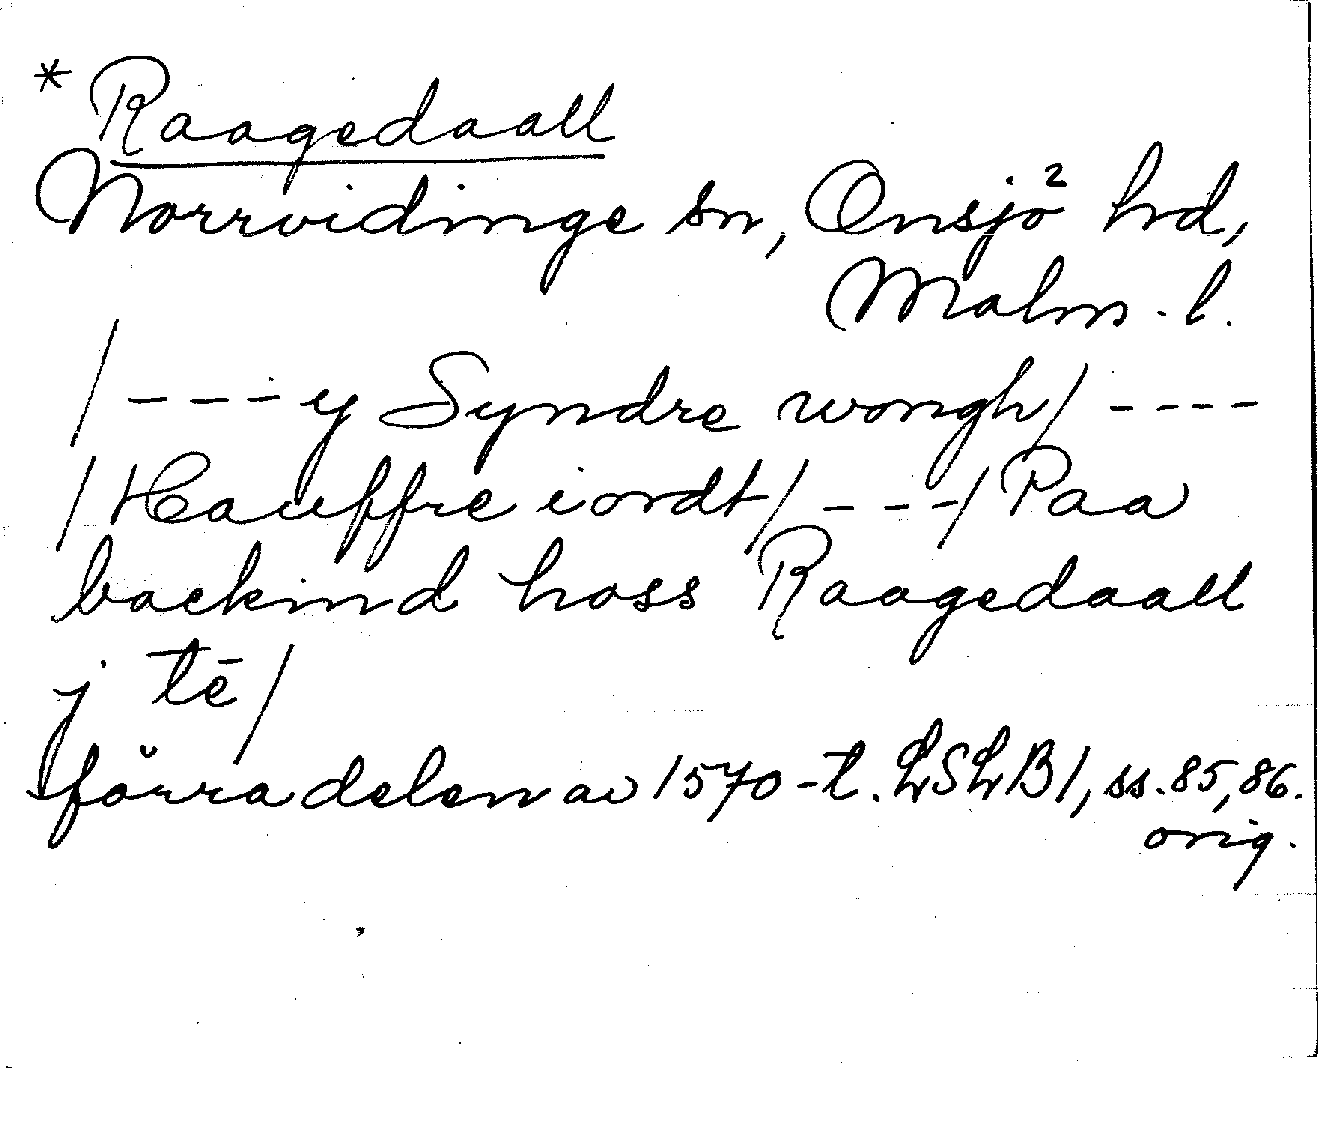 * Raagedaall
Norrvidinge sn, Onsjö² hrd,
Malm. l.
/ - - - y Syndre wongh/ - - - -
/ Hauffre iordt/ - - - / Paa
backind hoss Raagedaall
j tē /
förra delen av 1570-t. LSLB1, ss. 85, 86.
orig.